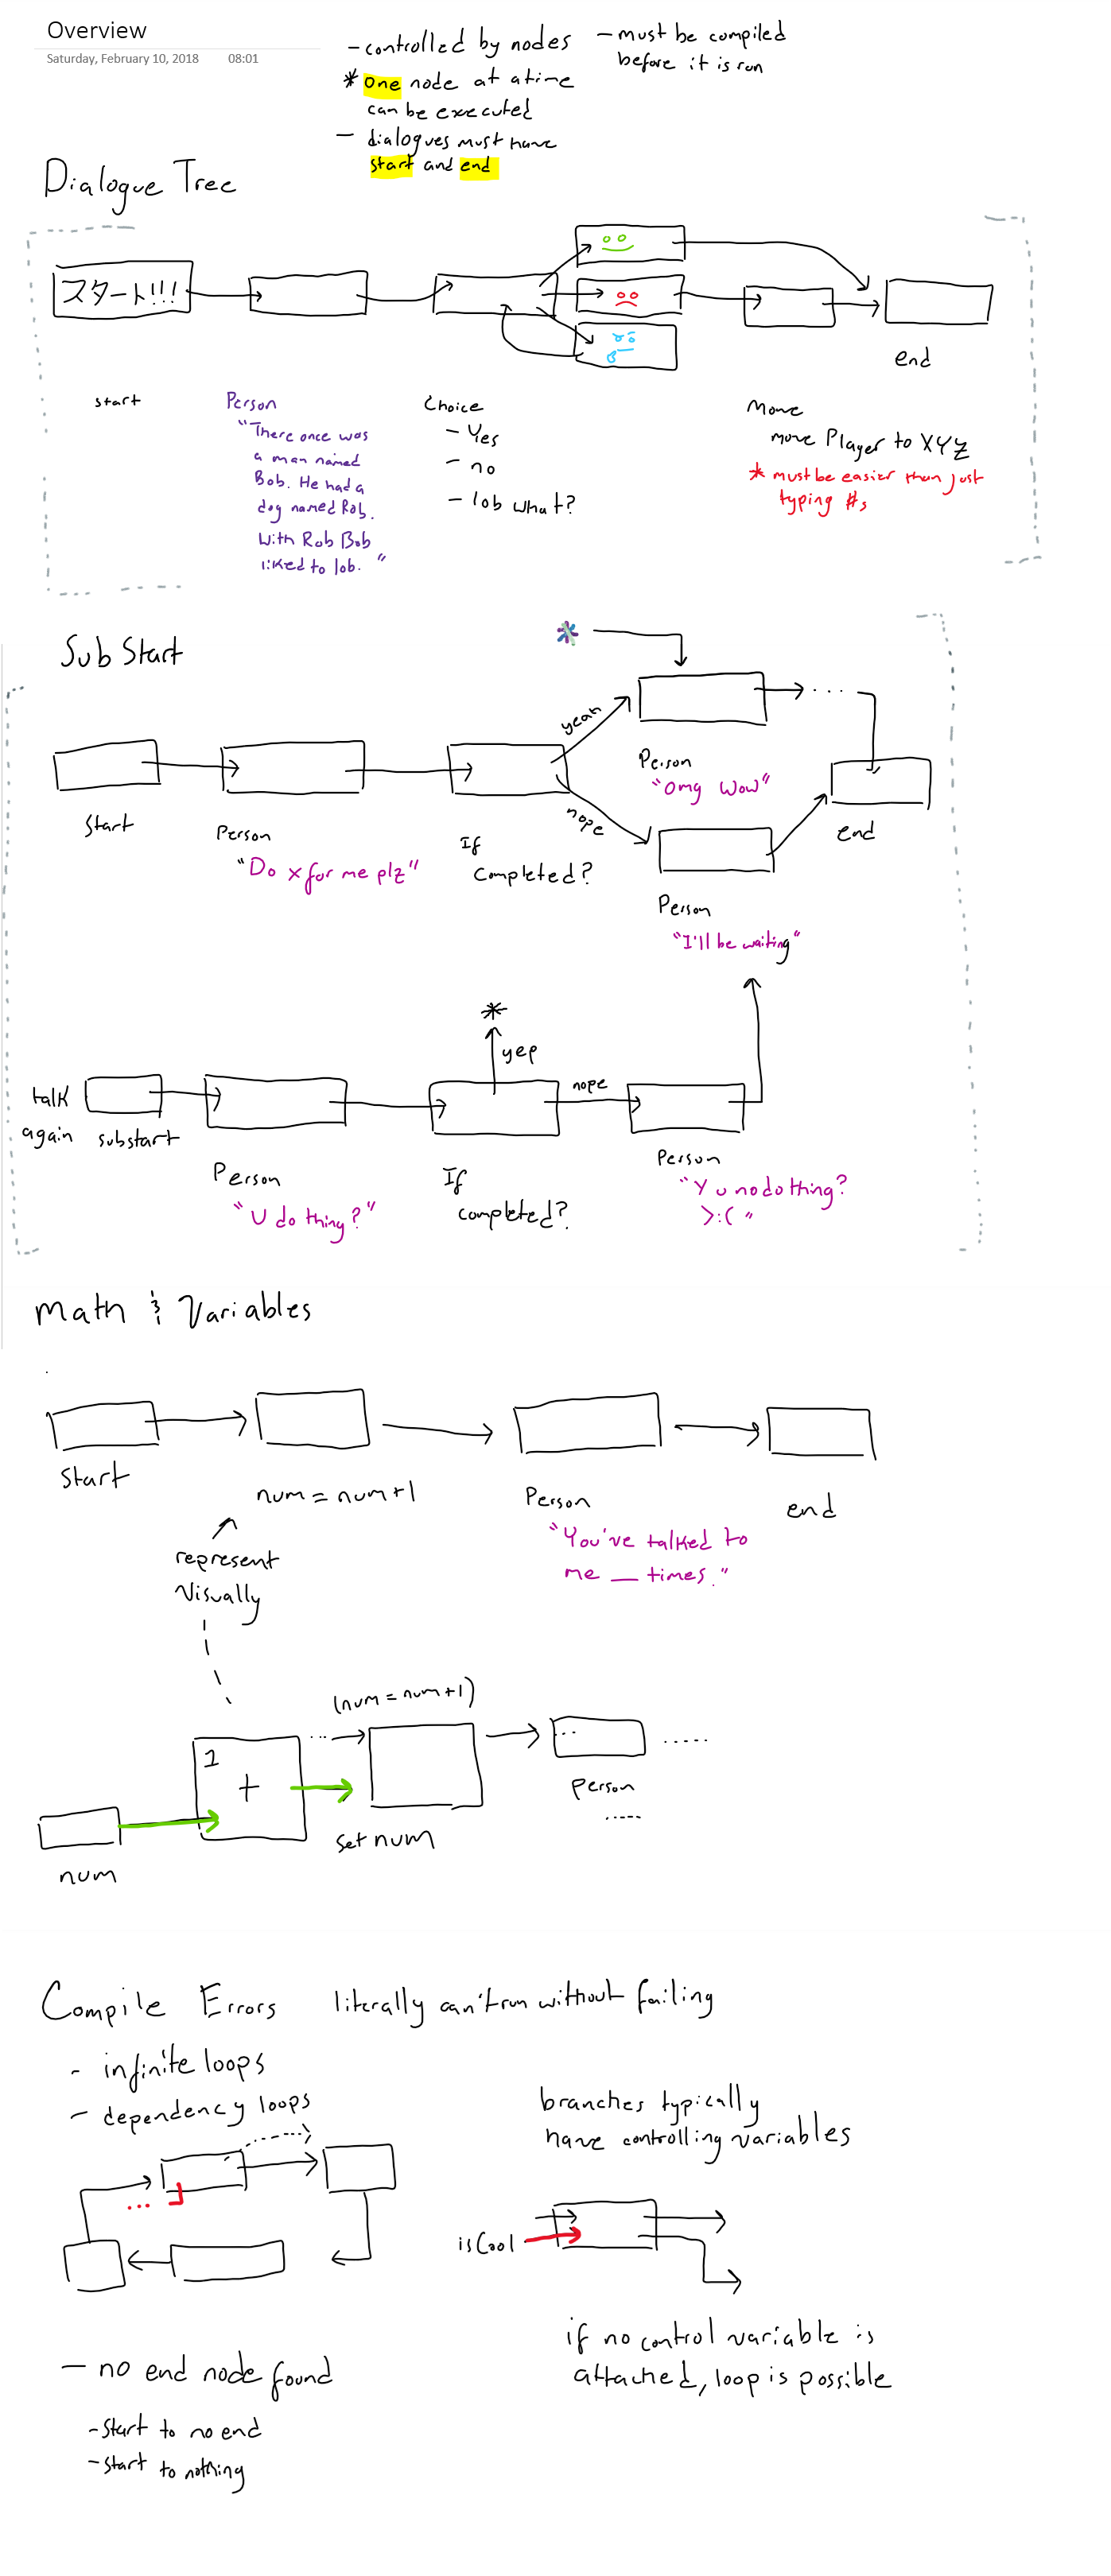 Overview
Saturday, February 10, 2018 08:01
- controlled by nodes
* one node at a time
can be executed
- dialogues must have
start and end
- must be compiled
before it is run
Dialogue Tree
スタート!!!
start
Person
"There once was
a man named
Bob. He had a
dog named Rob.
With Rob Bob
liked to lob."
Choice
- Yes
- no
- lob what?
Move
move Player to XYZ
* must be easier than just
typing #s
end
Sub Start
*
Start
Person
"Do x for me plz"
If
Completed?
yeah
nope
Person
"Omg Wow"
Person
"I'll be waiting"
end
talk
again
substart
Person
"U do thing?"
If
completed?
*
yep
nope
Person
"Y u no do thing?
>:( "
Math & Variables
Start
num = num+1
Person
"You've talked to
me __ times."
end
represent
Visually
(num = num+1)
1
+
num
Set num
...
Person
.....
Compile Errors literally can't run without failing
- infinite loops
- dependency loops
...
branches typically
have controlling variables
isCool
if no control variable is
attached, loop is possible
- no end node found
- Start to no end
- Start to nothing